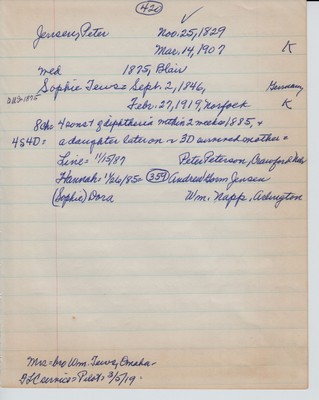 420
Jensen, Peter Nov. 25, 1829
Mar. 14, 1907 K
med 1875, Blair
Sophie Tews = Sept. 2, 1846, Germany
Febr. 27, 1919, Norfolk K
8ch: 4 sons + g diphtheria within 2 weeks 1885, +
4S4D = a daughter later on ~ 3D survived mother =
Line = 11/15/87 Peter Peterson, Crawford Neb
Hannah = 1/26/85 = 359 Andrew Gorm Jensen
(Sophie) Dora Wm. Napp, Arlington
Mrs = bro Wm. Tews, Omaha -
service = Pilot = 3/5/19 -